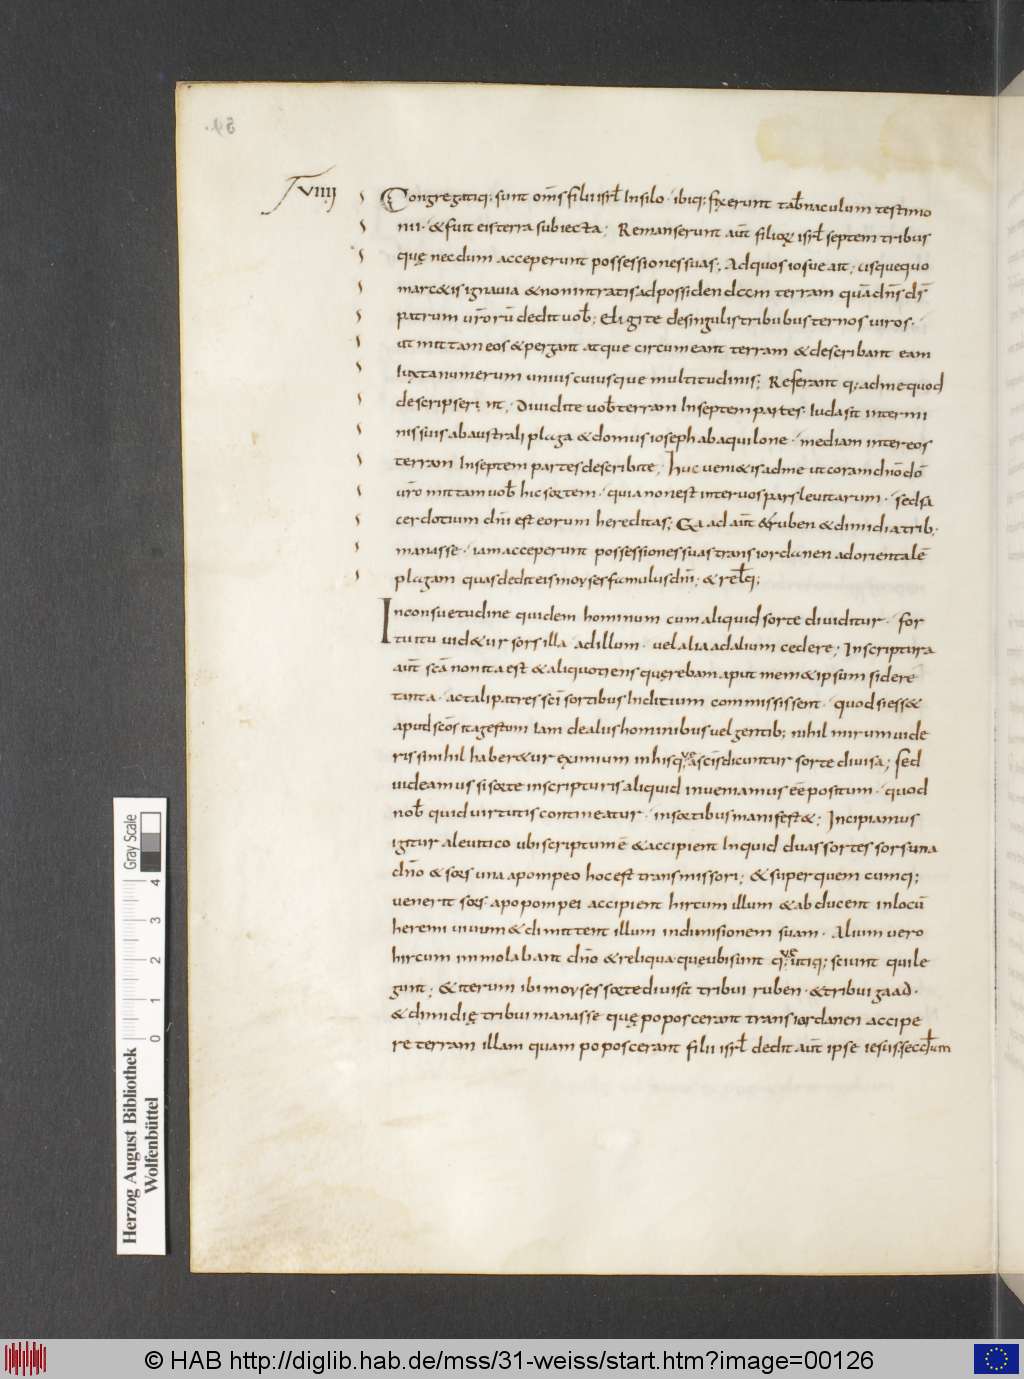 59.
XVIIII
Congregatiq; sunt om̅s filii isrl̅ In silo · ibiq; fixerunt tab̅naculum testimo
nii · & fuit eis terra subiecta; Remanserunt aut̅ filioꝝ isrl̅ septem tribus
quę necdum acceperunt possessiones suas; Ad quos iosue ait; usquequo
marc&is ignauia & non intratis ad possidendum terram qua̅ dn̅s ds̅
patrum ur̅oru̅ dedit uob̅; eligite de singulis tribubus ternos uiros ·
ut mittam eos & pergant atque circumeant terram & describant eam
Iuxta numerum unius cuiusque multitudinis; Referant q; ad me quod
descripserint; Diuidite uob̅ terram In septem partes · Iuda sit in termi
nis suis ab australi plaga & domus ioseph ab aquilone · mediam inter eos
terram In septem partes describite; huc ueni&is ad me ut coram dn̅o do̅
ur̅o mittam uob̅ hic sortem · quia non est inter uos pars leuitarum · sed sa
cerdotium dn̅i est eorum hereditas; Gad aut̅ & ruben & dimidia trib;
manasse · iam acceperunt possessiones suas trans iordanen ad orientale̅
plagam quas dedit eis moyses famulus dn̅i; & relq̅;
In consuetudine quidem hominum cum aliquid sorte diuiditur · for
tuitu uid&ur sors illa ad illum · uel alia ad alium cedere; In scriptura
aut̅ sc̅a non ita est & aliquotiens quęrebam aput mem&ipsum si de re
tanta · ac tali patres sc̅i sortibus Inditium commississent · quod si ess&
apud sc̅os ita gestum Iam de aliis hominibus uel gentib; nihil mirum uide
ris si nihil haber&ur eximium in his q;ue a sc̅is dicuntur sorte diuisa; sed
uideamus si sorte in scripturis aliquid inueniamus ee̅ positum · quod
nob̅ quid uirtutis contineatur · in sortibus manifest&; Incipiamus
igitur a leuitico ubi scriptum e̅ & accipient Inquid duas sortes sors una
dn̅o & sors una apompeo hoc est transmissori; & super quem cumq;
uenerit sors apopompei accipient hircum illum & abducent in locu̅
heremi uiuum & dimittent illum in dimisionem suam · Alium uero
hircum immolabant dn̅o & reliqua · quę ubi sint q;ue utiq; sciunt qui le
gunt; & iterum ibi moyses sorte diuisit tribui ruben · & tribui gaad ·
& dimidię tribui manasse quę poposcerant trans iordanen accipe
re terram illam quam poposcerant filii isrl̅ dedit aut̅ ipse iesus secd̅um
Herzog August Bibliothek
Wolfenbüttel
Gray Scale
0 1 2 3 4
© HAB http://diglib.hab.de/mss/31-weiss/start.htm?image=00126